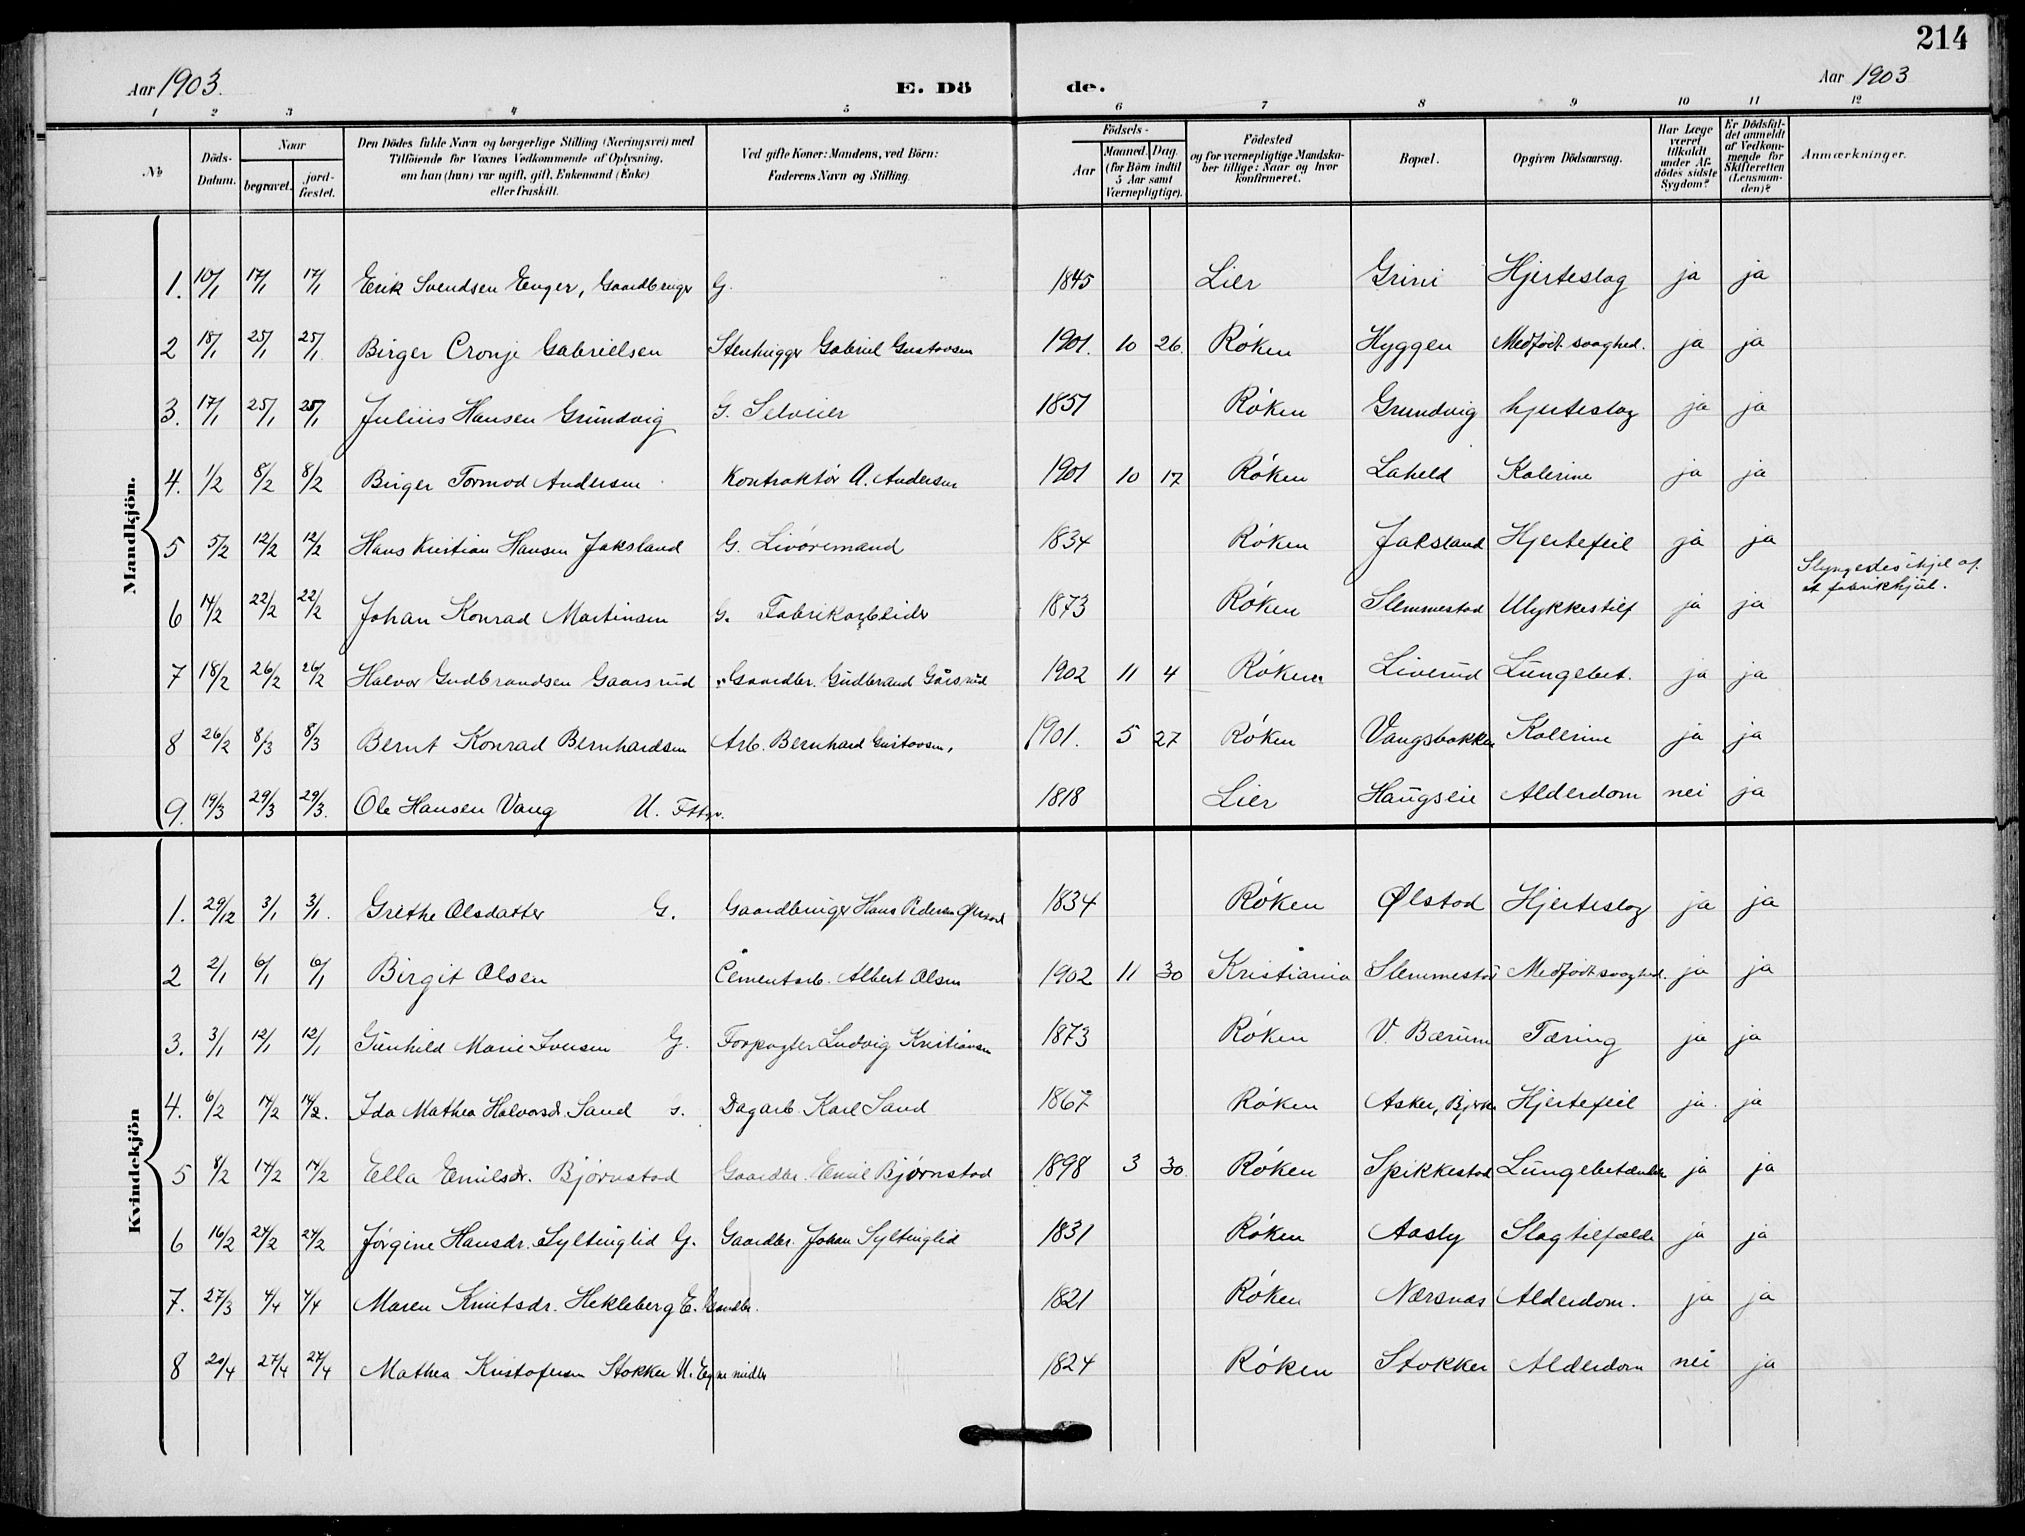 214
Aar 1903. E. Dö de. Aar 1903
1 2 3 4 5 6 7 8 9 10 11 12
No
Döds-Datum.
Naar
begravet.
jord-fæstet.
Den Dödes fulde Navn og borgerlige Stilling (Næringsvei) med
Tilföiende for Voxnes Vedkommende af Oplysning,
om han (hun) var ugift, gift, Enkemand (Enke)
eller fraskilt.
Ved gifte Koner: Mandens, ved Börn:
Faderens Navn og Stilling.
Födsels-
Aar
Maaned. Dag.
(for Börn indtil
5 Aar samt
Værnepligtige).
Födested
og for værnepligtige Mandska-
ber tillige: Naar og hvor
konfirmeret.
Bopæl.
Opgiven Dödsaarsag.
Har Læge
været
tilkaldt
under Af-
dödes sidste
Sygdom?
Er Dödsfal-
det anmeldt
af Vedkom-
mende for
Skifteretten
(Lensman-
den)?
Anmærkninger.
Mandkjön.
1. 10/1 17/1 17/1 Erik Svendsen Enger, Gaardbruger G. 1845 Lier Grini Hjerteslag ja ja
2 18/1 25/1 25/1 Birger Cronje Gabrielsen Stenhugger Gabriel Gustavsen 1901. 10 26. Røken Hyggen Medfödt svaghed. ja ja
3. 17/1 25/1 25/1 Julius Hansen Grundvig G. Selveier 1851 Røken Grundvig hjerteslag ja ja
4. 1/2 8/2 8/2 Birger Tormod Andersen Kontraktör A. Andersen 1901 10 17 Røken Laheld Kolerine ja ja
5 5/2 12/2 12/2 Hans Kristian Hansen Jaksland G. Livöremand 1834 Røken Jaksland Hjertefeil ja ja
6 14/2 22/2 22/2 Johan Konrad Martinsen G. Fabrikarbeider 1873 Røken Slemmestad Ulykkestilf ja ja Slyngedes ihjel af
et fabrikhjul.
7 18/2 26/2 26/2 Halvor Gudbrandsen Gaarsrud Gaardbr. Gudbrand Gårsrud 1902 11 4 Røken Liverud Lungebet. ja ja
8 26/2 8/3 8/3 Bernt Konrad Bernhardsen Arb. Bernhard Gustavsen, 1901. 5 27 Røken Vangsbakken Kolerine ja ja
9. 19/3 29/3 29/3. Ole Hansen Vang U. 1818 Lier Haugseie Alderdom nei ja
Kvindekjön
1. 29/12 3/1 3/1. Grethe Olsdatter G. Gaardbruger Hans Pedersen Ølstad 1834 Røken Ølstad Hjerteslag ja ja
2 2/1 6/1 6/1 Birgit Olsen Cementarb. Albert Olsen 1902 11 30 Kristiania Slemmestad Medfödt svaghed. ja ja
3. 3/1 12/1 12/1 Gunhild Marie Iversen G. Forpagter Ludvig Kristiansen 1873 Røken V. Bærum Tæring ja ja
4. 6/2 14/2 14/2. Ida Mathea Halvorsdr. Sand G. Dagarb. Karl Sand 1867 Røken Asker, Hjertefeil ja. ja
5 8/2 14/2 14/2 Ella Emilsdr. Björnstad Gaardbr. Emil Björnstad 1898 3 30. Røken Spikkestad Lungebetændelse ja ja
6 16/2 24/2 24/2 Jørgine Hansdr. Syltinglid G. Gaardbr. Johan Syltinglid 1831 Røken Aasly Slagtilfælde ja ja
7. 27/3 4/4 4/4 Maren Knutsdr. Hekleberg E. Gaardbr. 1821 Røken Nærsnæs Alderdom. ja ja
8 20/4 27/4 27/4 Mathea Kristofersen Stokker U. Egne midler 1824 Røken Stokker Alderdom nei ja